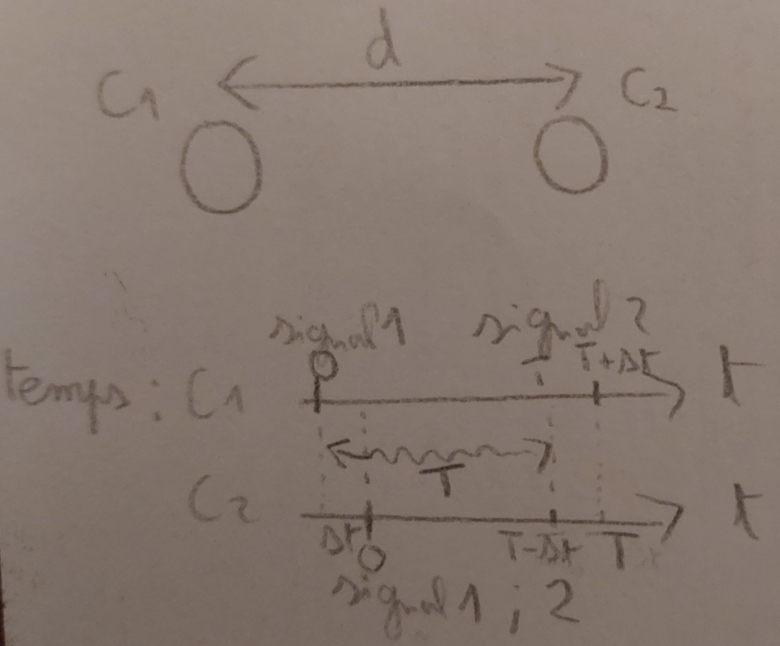 d
C1 C2
signal 1 signal 2
T T+Δt
temps: C1 t
T
C2 t
Δt T-Δt T
0
signal 1 ; 2